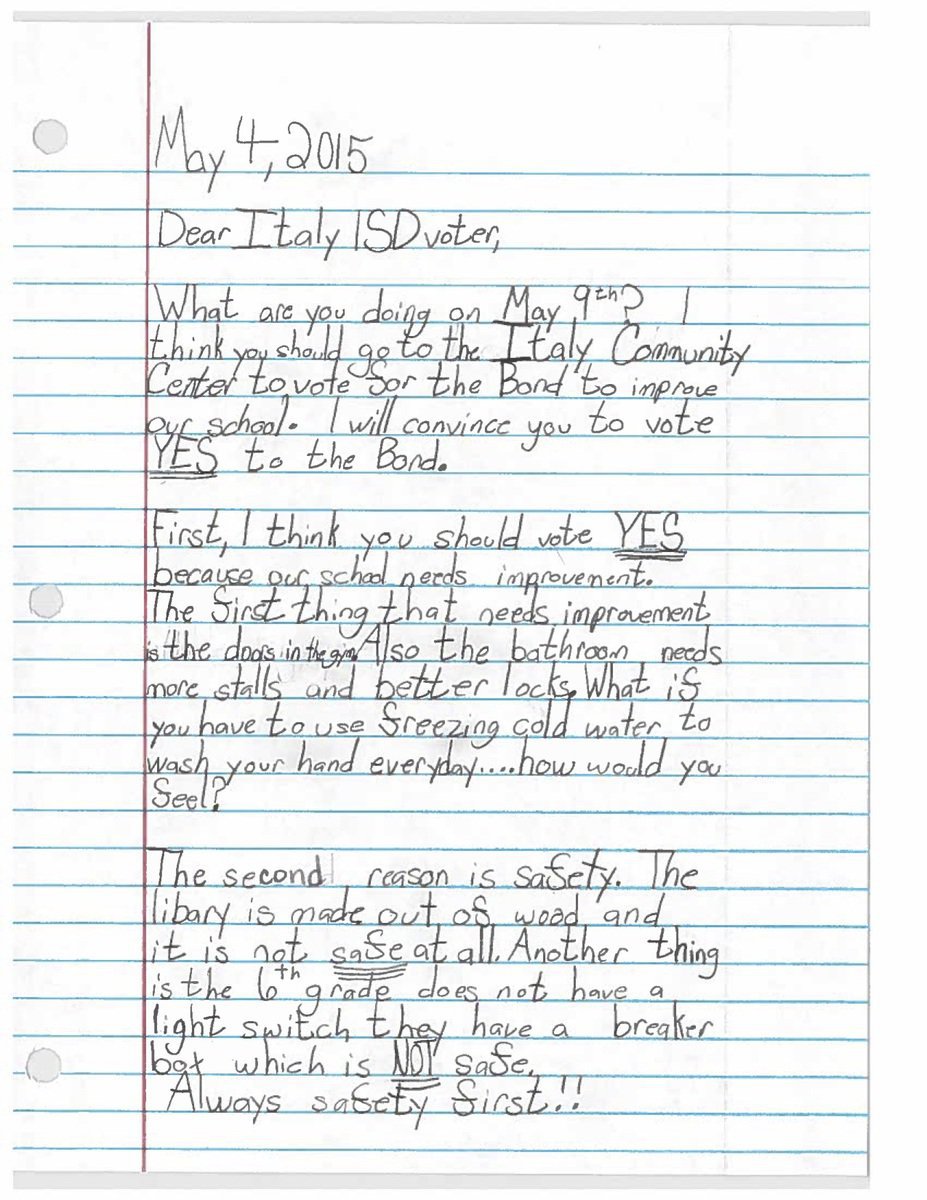 May 4, 2015
Dear Italy ISD voter,
What are you doing on May 9th? I
think you should go to the Italy Community
Center to vote for the Bond to improve
our school. I will convince you to vote
YES to the Bond.
First, I think you should vote YES
because our school needs improvement.
The first thing that needs improvement
is the doors in the gym. Also the bathroom needs
more stalls and better locks. What if
you have to use freezing cold water to
wash your hand everyday....how would you
feel?
The second reason is safety. The
libary is made out of wood and
it is not safe at all. Another thing
is the 6th grade does not have a
light switch they have a breaker
box which is NOT safe.
Always safety first!!